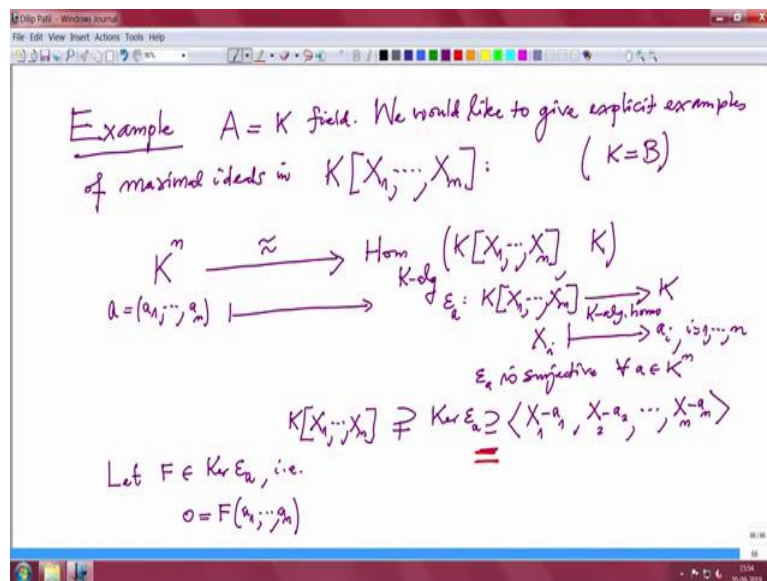 Dilip Patil - Windows Journal
File Edit View Insert Actions Tools Help
Example A = K field. We would like to give explicit examples
of maximal ideals in K[X₁,⋯,Xₙ] : (K=B)
Kⁿ ⟶≈ Hom_{K-alg} (K[X₁,⋯,Xₙ] K)
a = (a₁,⋯,aₙ) ⟼ εₐ : K[X₁,⋯,Xₙ] ⟶ K
K-alg. homo
Xᵢ ⟼ aᵢ, i=1,⋯,n
εₐ is surjective ∀ a ∈ Kⁿ
K[X₁,⋯,Xₙ] ⊋ Ker εₐ ⊇ ⟨X₁-a₁, X₂-a₂, ⋯, Xₙ-aₙ⟩
=
Let F ∈ Ker εₐ, i.e.
0 = F(a₁,⋯,aₙ)
66/66
66
15:54